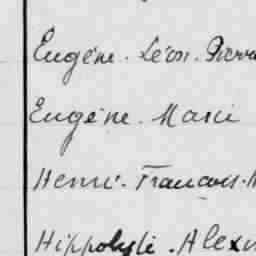 Eugène. Léon. Pierre
Eugène. Marie
Henri. François.
Hippolyte. Alex